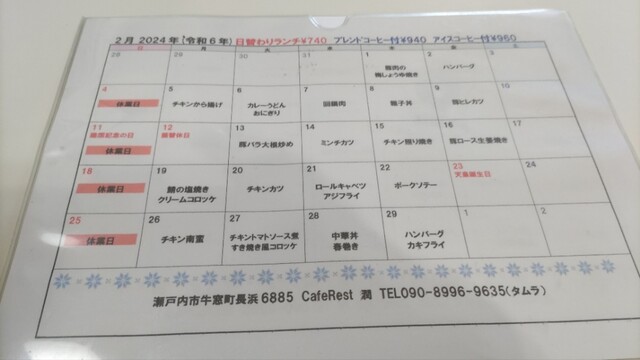 2月 2024年(令和6年) 日替わりランチ¥740 ブレンドコーヒー付¥940 アイスコーヒー付¥960
日 月 火 水 木 金 土
28 29 30 31 1 2 3
豚肉の
梅しょうゆ焼き
ハンバーグ
4 5 6 7 8 9 10
休業日
チキンから揚げ
カレーうどん
おにぎり
回鍋肉
親子丼
豚ヒレカツ
11 12 13 14 15 16 17
建国記念の日
振替休日
休業日
豚バラ大根炒め
ミンチカツ
チキン照り焼き
豚ロース生姜焼き
18 19 20 21 22 23 24
天皇誕生日
休業日
鯖の塩焼き
クリームコロッケ
チキンカツ
ロールキャベツ
アジフライ
ポークソテー
25 26 27 28 29 1 2
休業日
チキン南蛮
チキントマトソース煮
すき焼き風コロッケ
中華丼
春巻き
ハンバーグ
カキフライ
瀬戸内市牛窓町長浜6885 CafeRest 潤 TEL090-8996-9635(タムラ)